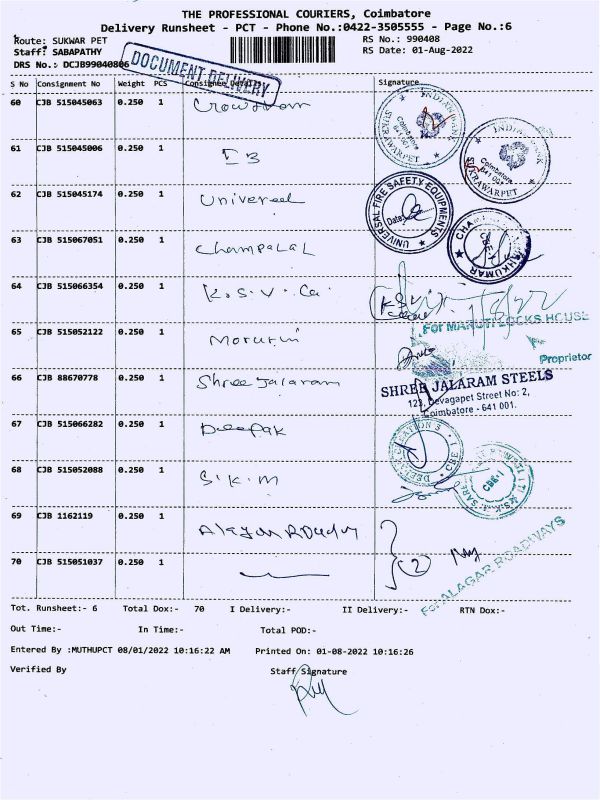 THE PROFESSIONAL COURIERS, Coimbatore
Delivery Runsheet - PCT - Phone No.:0422-3505555 - Page No.:6
Route: SUKWAR PET RS No.: 990408
Staff: SABAPATHY RS Date: 01-Aug-2022
DRS No.: DCJB99040806
DOCUMENT DELIVERY
S No Consignment No Weight PCS Consignee Details Signature
60 CJB 515045063 0.250 1
INDIAN BANK Coimbatore 641 001 SUKRAWARPET
61 CJB 515045006 0.250 1 I B
INDIAN BANK Coimbatore 641 001 SUKRAWARPET
62 CJB 515045174 0.250 1 Universal
UNIVERSAL FIRE SAFETY EQUIPMENTS Date
63 CJB 515067051 0.250 1 Champalal
64 CJB 515066354 0.250 1 K.S.V. Co
1/8/22
For MARUTI LOCKS HOUSE
65 CJB 515052122 0.250 1 Moruthi
Proprietor
66 CJB 88670778 0.250 1 Shree Jalaram
SHREE JALARAM STEELS
123, Devagapet Street No: 2,
Coimbatore - 641 001.
67 CJB 515066282 0.250 1 Deepak
68 CJB 515052088 0.250 1 S.K.M
CBE-1
69 CJB 1162119 0.250 1
For ALAGAR ROADWAYS
70 CJB 515051037 0.250 1 2
Tot. Runsheet:- 6 Total Dox:- 70 I Delivery:- II Delivery:- RTN Dox:-
Out Time:- In Time:- Total POD:-
Entered By :MUTHUPCT 08/01/2022 10:16:22 AM Printed On: 01-08-2022 10:16:26
Verified By Staff Signature